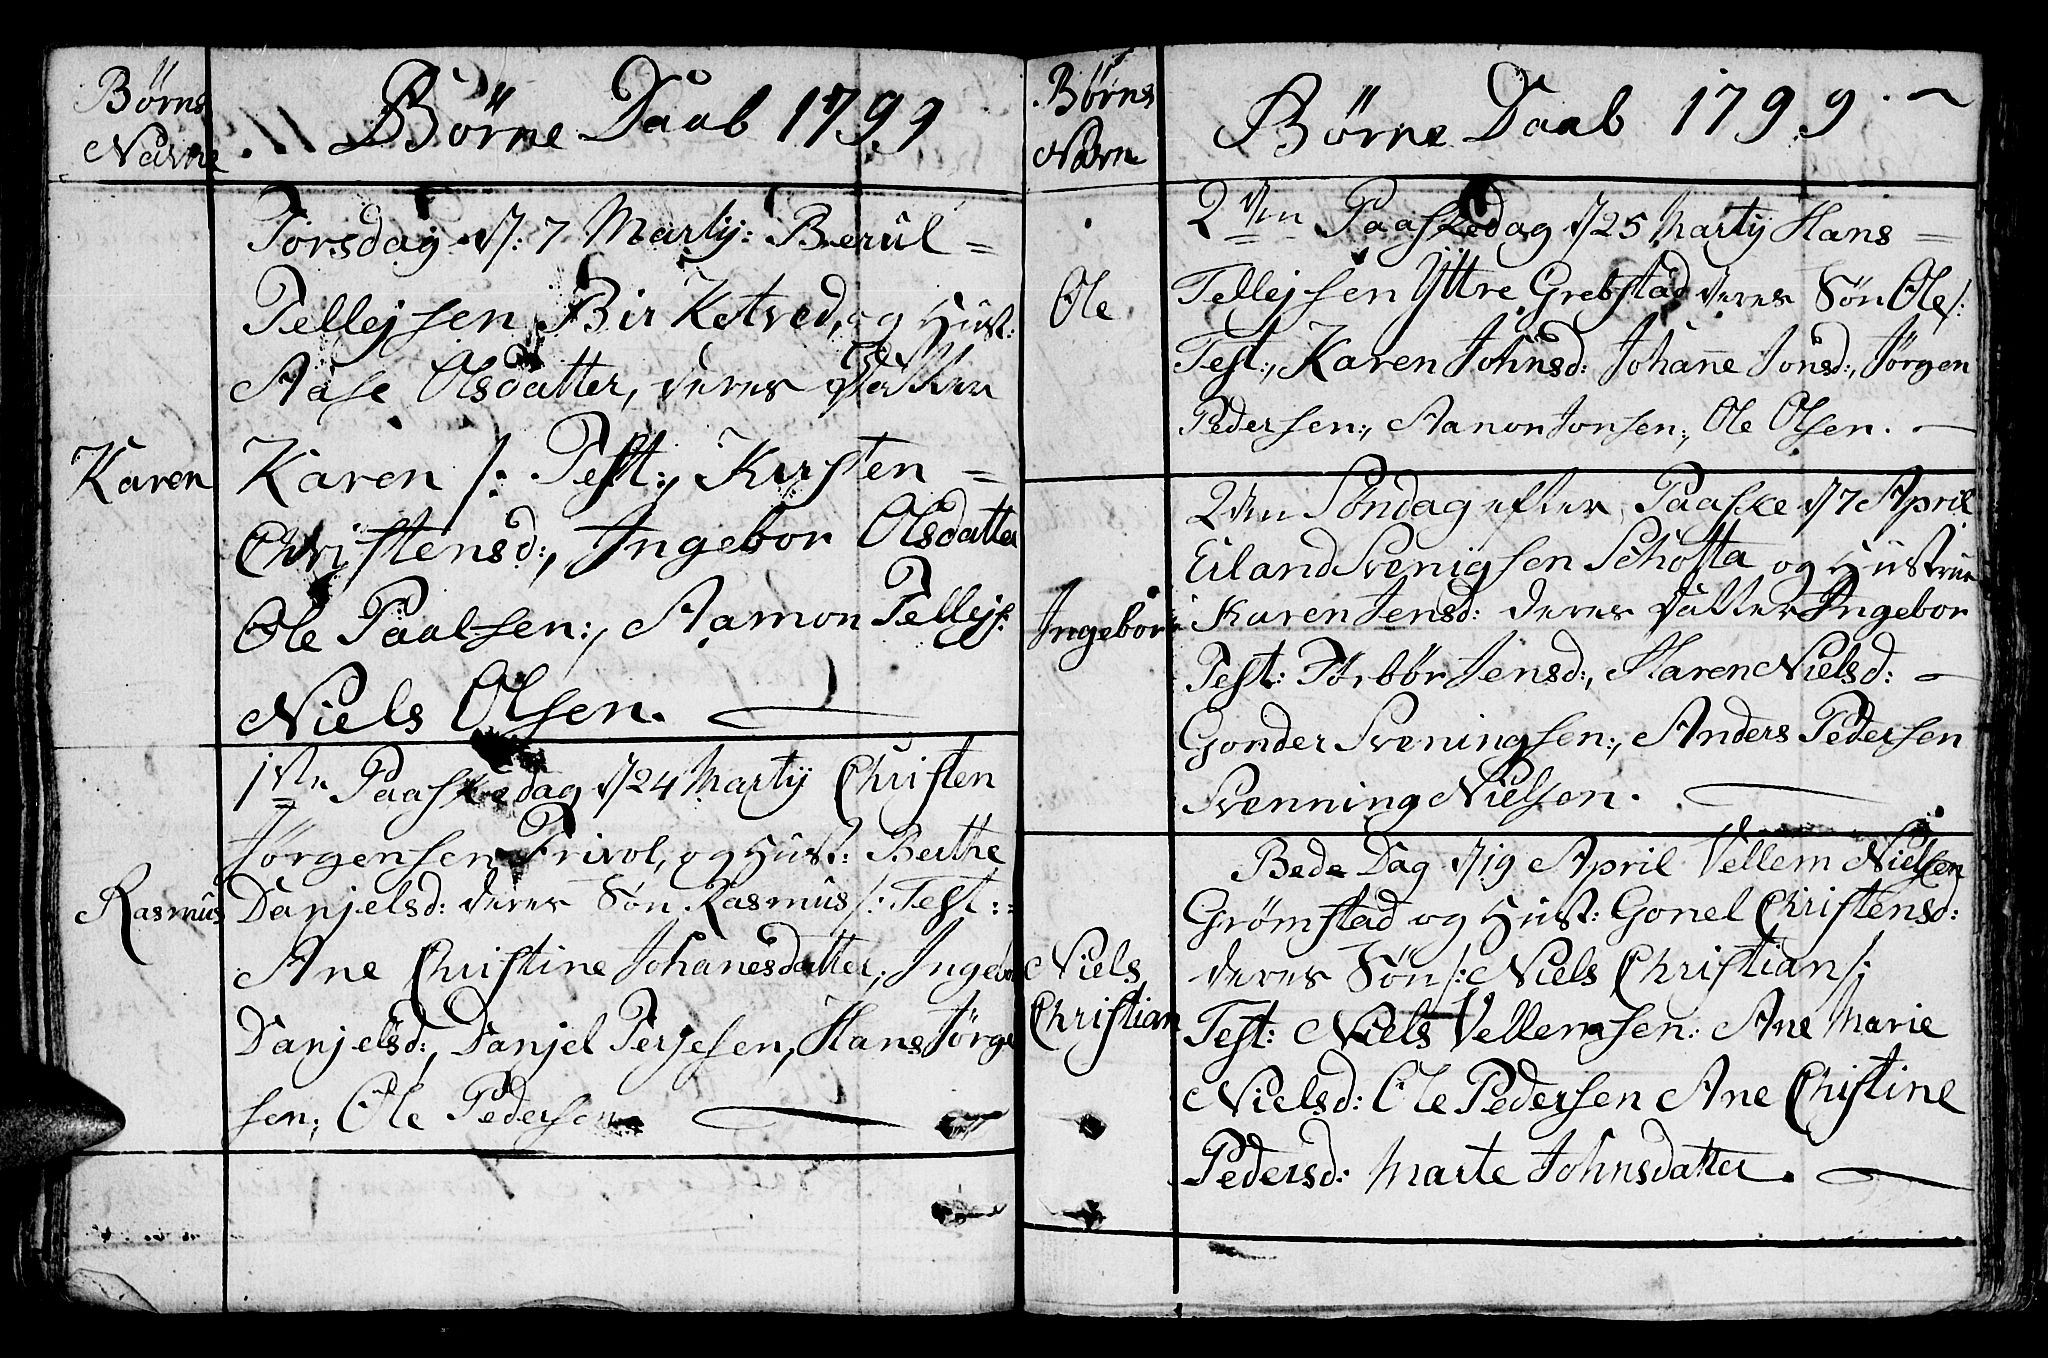 Børns
Navne
Børne Daab 1799
Torsdag d: 7 Martij: Berul=
Tellejsen Birketved, og Hust:
Aase Olsdatter, deres Datter
Karen
Karen /: Test:, Kirsten=
Christensd:, Ingebor Olsdatter
Ole Paalsen:, Aamon Tellejs:
Niels Olsen.
1ste Paaskedag d 24 Martij Christen
Jørgensen Frivol, og Hust: Berthe
Rasmus
Danjelsd: deres Søn Rasmus /: Test:=
Ane Christine Johanesdatter, Ingebor
Danjelsd:, Danjel Terjesen, Hans Jørgen
sen; Ole Pedersen
Børns
Navn
Børne Daab 1799.
2den Paaskedag d 25 Martij Hans=
Ole
Tellejsen Yttre Grebstad deres Søn Ole /:
Test:, Karen Johnsd: Johanne Jonsd:, Jørgen
Pedersen:, Aanon Jonsen:, Ole Olsen.
2den Søndag efter Paaske d 7 April
Eiland Svenigsen Schofta og Hustrue
Ingebor
Karen Jensd: deres Datter Ingebor
Test: Torbør Jensd:, Maren Nielsd:
Gonder Sveningsen:, Anders Pedersen
Svenning Nielsen.
Bede Dag d 19 April Vellem Nielsen
Grømstad og Hust: Gonel Christensd:
Niels
Christian
deres Søn /: Niels Christian /:
Test: Niels Vellemsen: Ane Marie
Nielsd: Ole Pedersen Ane Christine
Pedersd: Marte Johnsdatter.